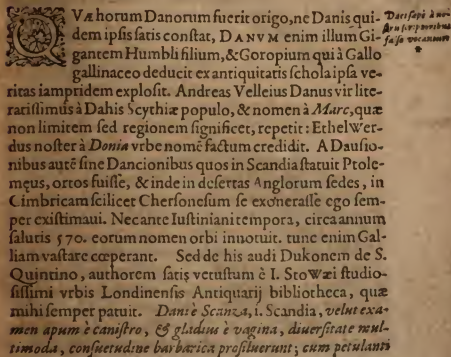 QVæ horum Danorum fuerit origo, ne Danis qui-
dem ipsis satis constat, DANVM enim illum Gi-
gantem Humbli filium, & Goropium qui à Gallo
gallinaceo deducit ex antiquitatis schola ipsa ve-
ritas iampridem explosit. Andreas Velleius Danus vir lite-
ratissimus à Dahis Scythiæ populo, & nomen à Marc, quæ
non limitem sed regionem significet, repetit: EthelWer-
dus noster à Donia vrbe nomē factum credidit. A Daufio-
nibus autē sine Dancionibus quos in Scandia statuit Ptole-
męus, ortos fuisse, & inde in desertas Anglorum sedes, in
Cimbricam scilicet Chersonesum se exonerasse ego sem-
per existimaui. Nec ante Iustiniani tempora, circa annum
salutis 570. eorum nomen orbi innotuit. tunc enim Gal-
liam vastare cœperant. Sed de his audi Dukonem de S.
Quintino, authorem satis vetustum è I. StoWæi studio-
sissimi vrbis Londinensis Antiquarij bibliotheca, quæ
mihi semper patuit. Dani è Scanza, i. Scandia, velut exa-
men apum è canistro, & gladius è vagina, diuersitate mul-
timoda, consuetudine barbarica prosiluerunt; cum petulanti
Daci sæpè à
scriptoribus
falsò vocantur